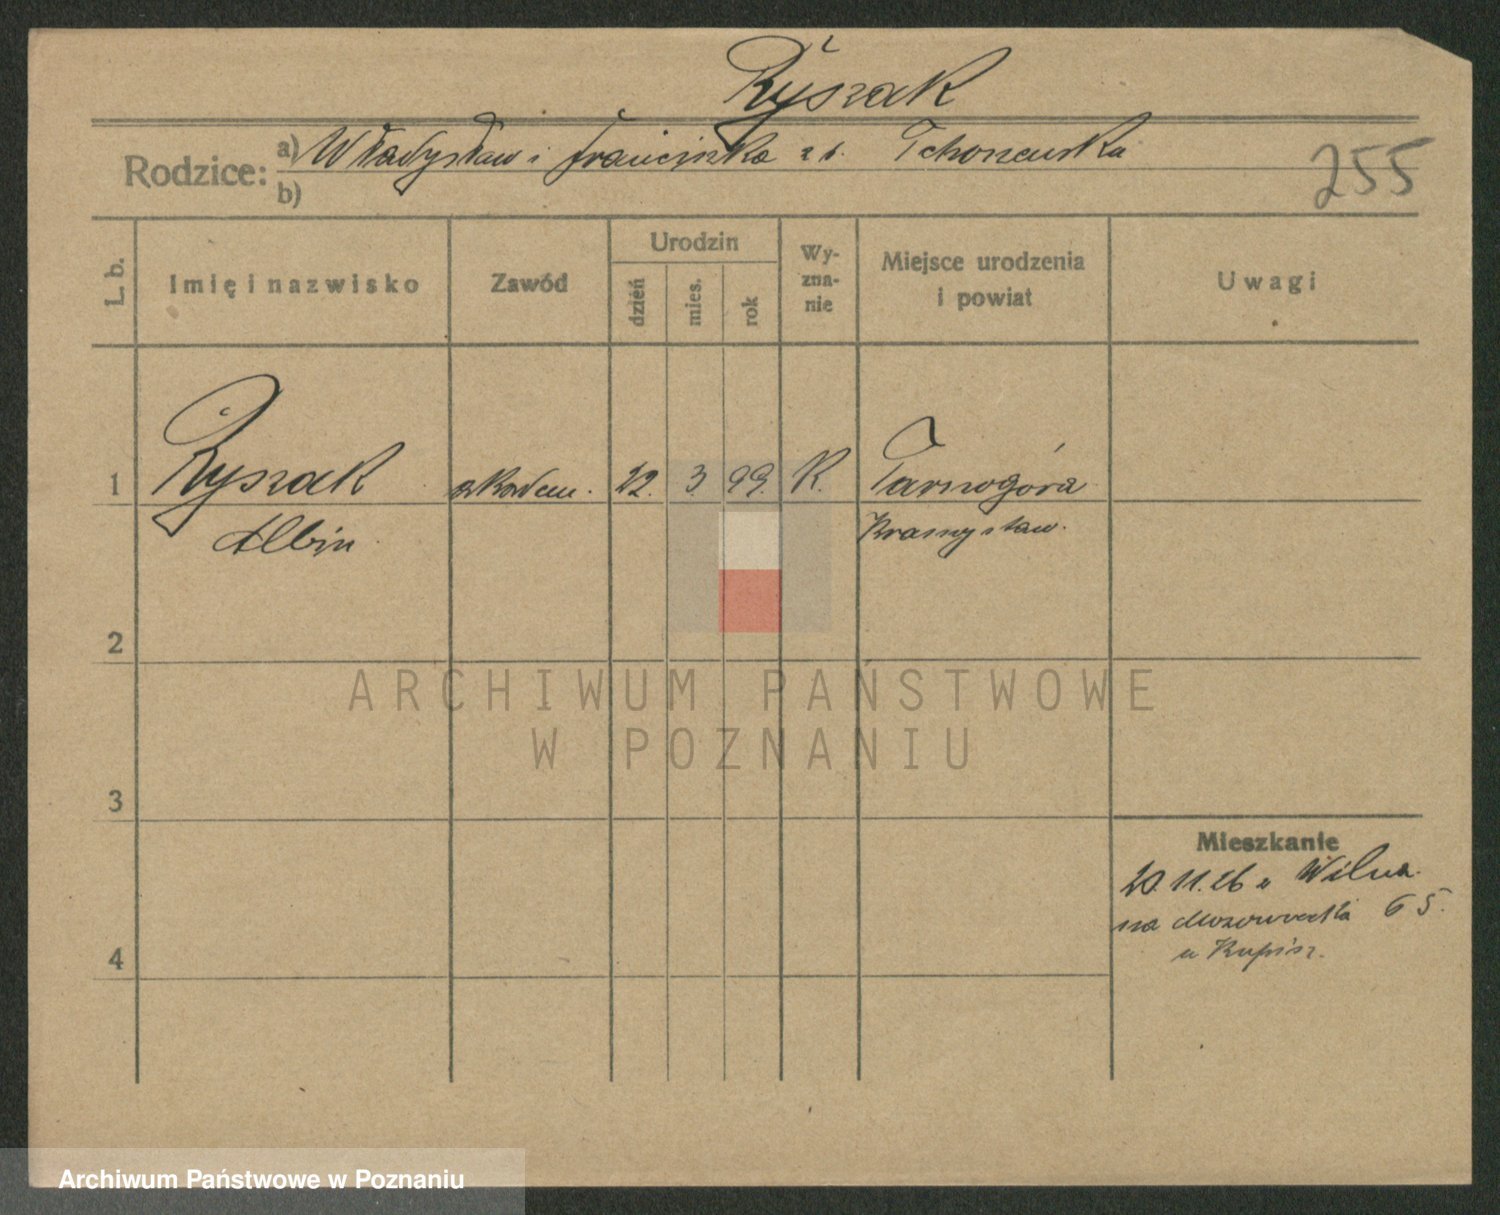 Ryszak
Rodzice: a) Władysław i Franciszka z d.
b)
255
L. b.
Imię i nazwisko
Zawód
Urodzin
dzień
mies.
rok
Wy-
zna-
nie
Miejsce urodzenia
i powiat
Uwagi
1 Ryszak akadem. 22. 3 99. K. Tarnogóra
Albin Krasnystaw.
2
3
4
Mieszkanie
20.11.26 z Wilna
na Mazowiecką 65.
ARCHIWUM PAŃSTWOWE
W POZNANIU
Archiwum Państwowe w Poznaniu